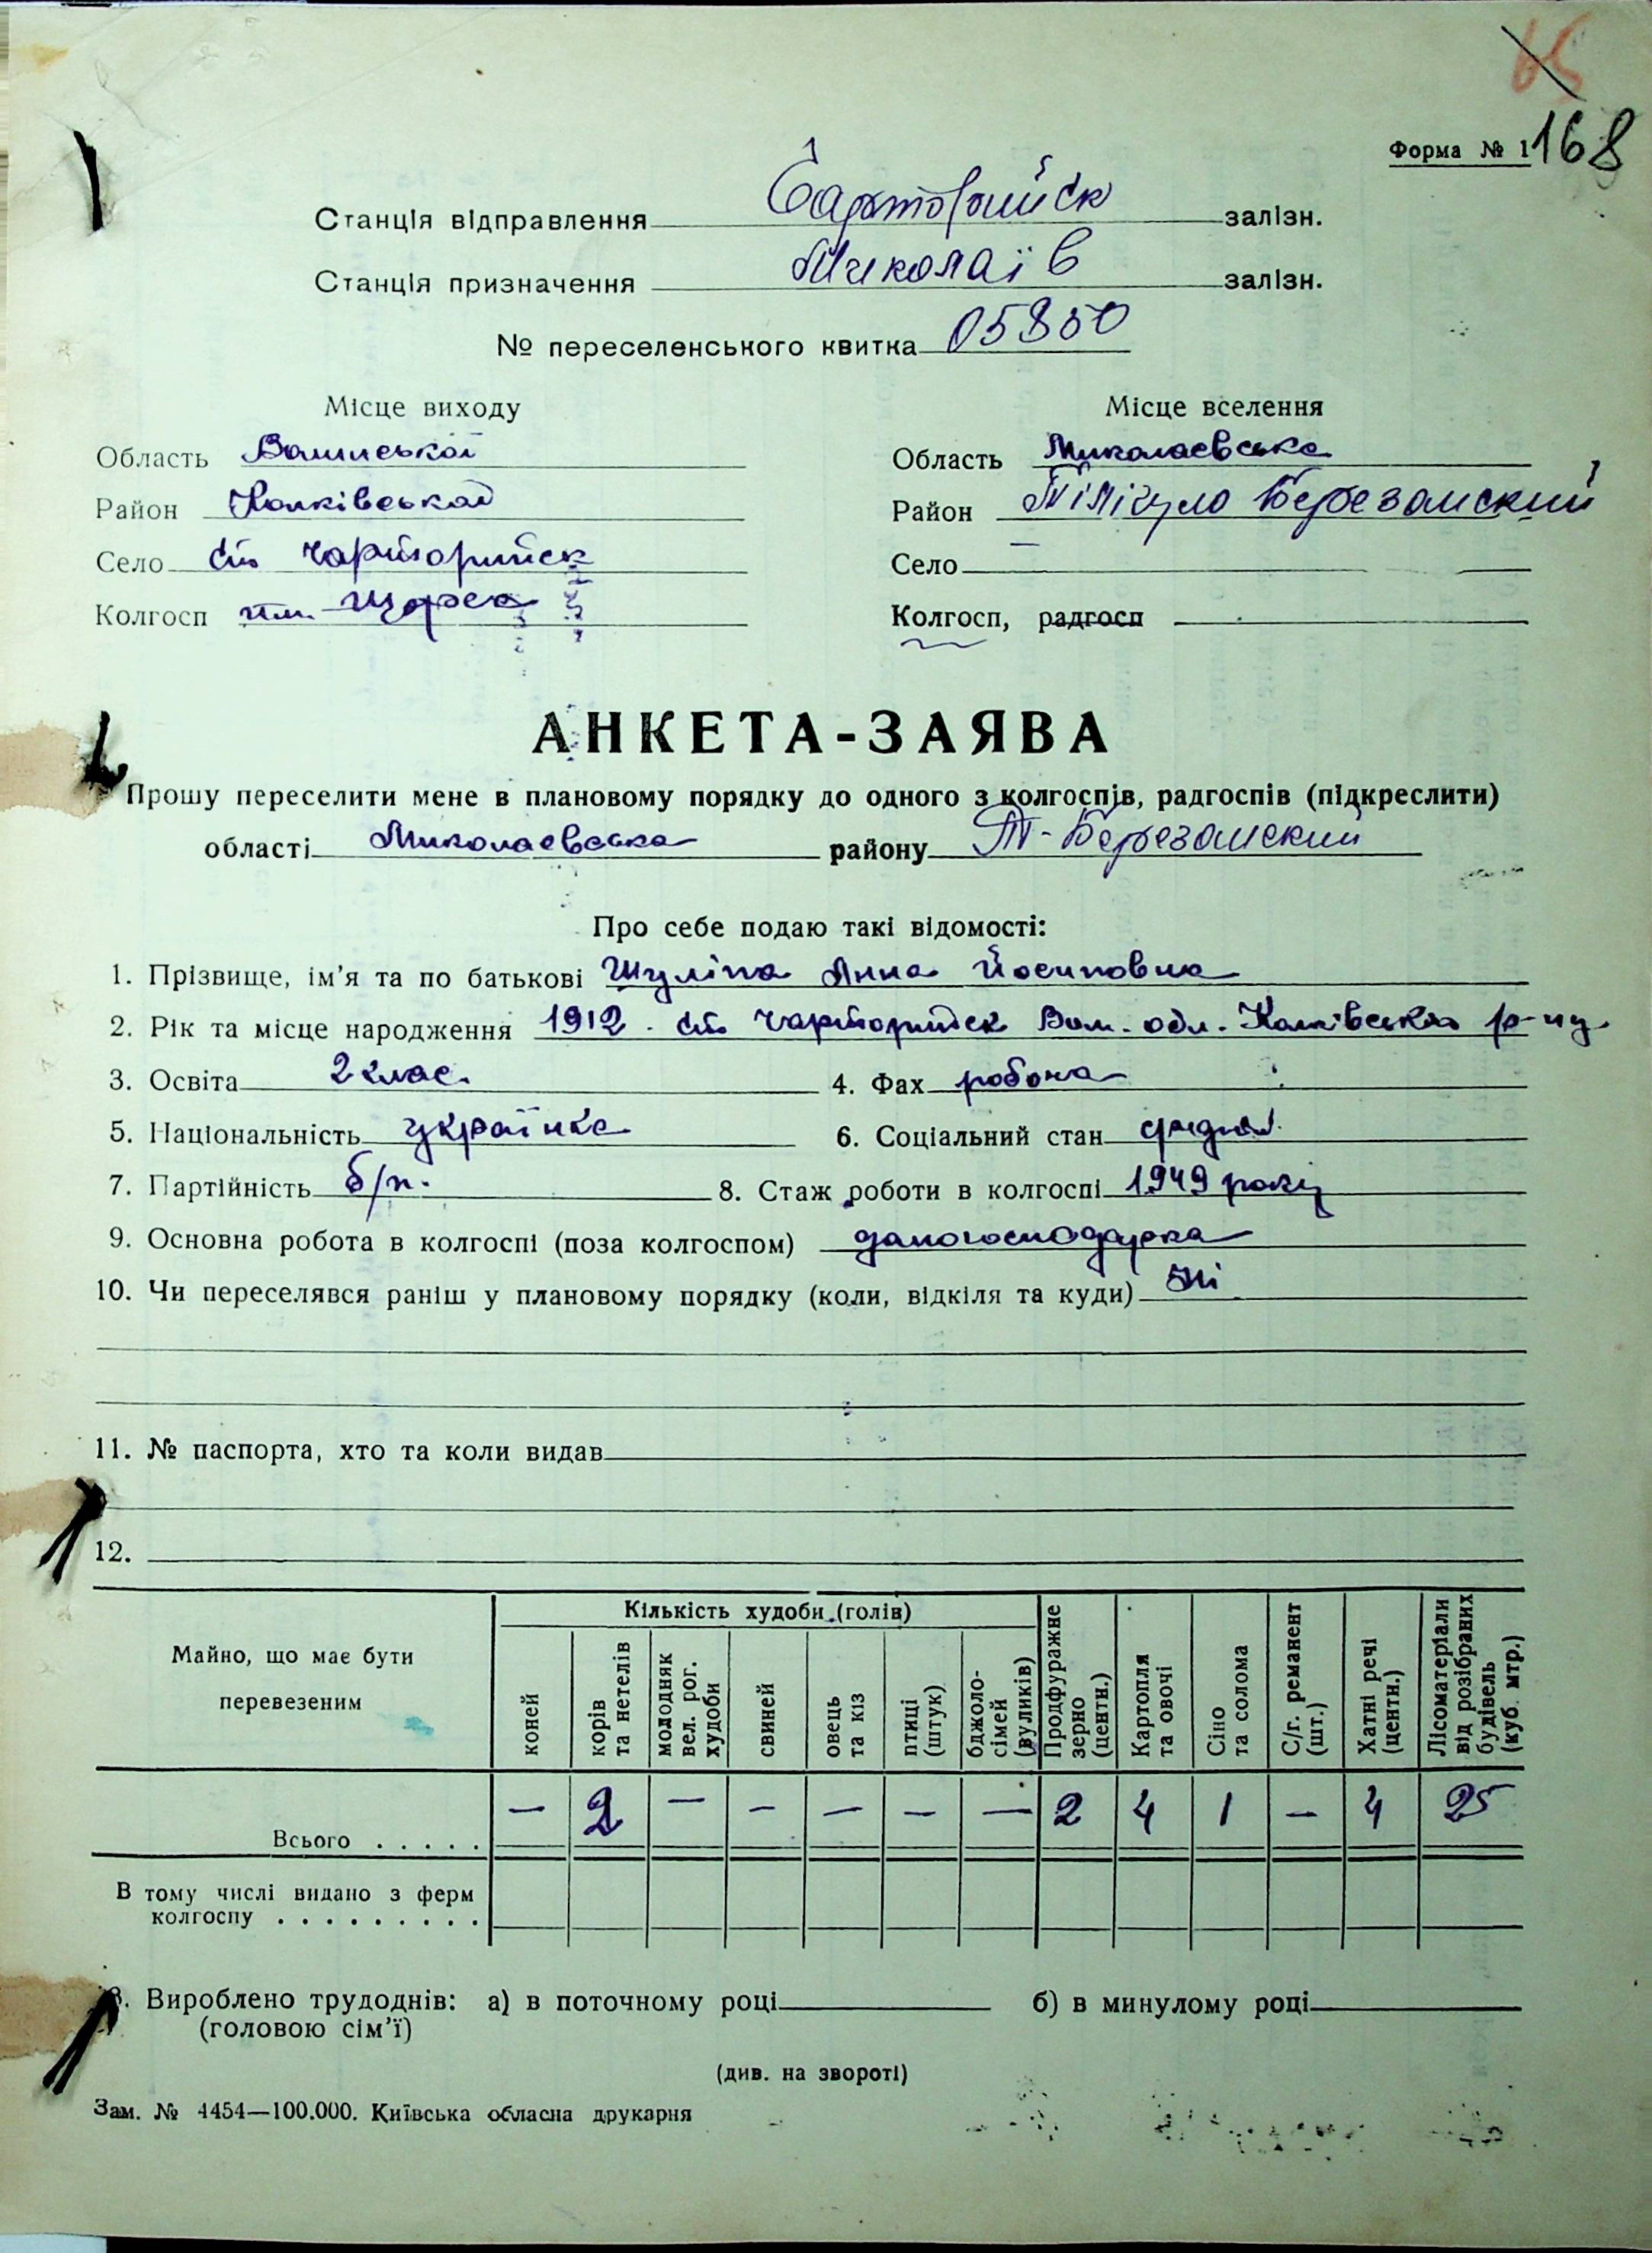 65
Форма № 1 168
Станція відправлення залізн.
Станція призначення Миколаїв залізн.
№ переселенського квитка 05850
Місце виходу Місце вселення
Область Волинської Область Миколаевська
Район Колківської Район Тілігуло Березанский
Село ст Чарторийск Село —
Колгосп им. Щорса Колгосп, радгосп
АНКЕТА-ЗАЯВА
Прошу переселити мене в плановому порядку до одного з колгоспів, радгоспів (підкреслити)
області Миколаевська району Т-Березанский
Про себе подаю такі відомості:
1. Прізвище, ім'я та по батькові Шуліпа Анна Йосиповна
2. Рік та місце народження 1912 ст Чарторийск Вол. обл. Колківська р-ну
3. Освіта 2 клас. 4. Фах
5. Національність українка 6. Соціальний стан
7. Партійність б/п. 8. Стаж роботи в колгоспі 1949 року
9. Основна робота в колгоспі (поза колгоспом) домогосподарка
10. Чи переселявся раніш у плановому порядку (коли, відкіля та куди) Ні
11. № паспорта, хто та коли видав
12.
Майно, що має бути перевезеним
Кількість худоби (голів)
коней
корів та нетелів
молодняк вел. рог. худоби
свиней
овець та кіз
птиці (штук)
бджоло-сімей (вуликів)
Продфуражне зерно (центн.)
Картопля та овочі
Сіно та солома
С/г. реманент (шт.)
Хатні речі (центн.)
Лісоматеріали від розібраних будівель (куб. мтр.)
Всього . . . . . — 2 — — — — — 2 4 1 — 4 25
В тому числі видано з ферм
колгоспу . . . . . . . . .
3. Вироблено трудоднів: а) в поточному році б) в минулому році
(головою сім'ї)
(див. на звороті)
Зам. № 4454—100.000. Київська обласна друкарня